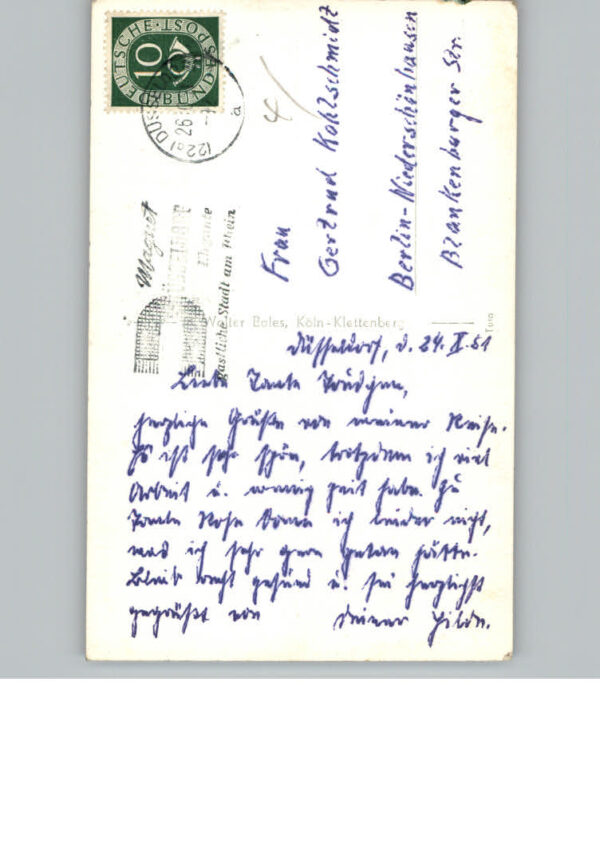 DEUTSCHE BUNDESPOST
10
(22a) DÜSSELDORF
26
a
Magnet
DÜSSELDORF
Elegante
gastliche Stadt am Rhein
Frau
Gertrud Kohlschmidt
Berlin-Niederschönhausen
Blankenburger Str.
Walter Bales, Köln-Klettenberg
Düsseldorf, d. 24. X. 51
Liebe Tante Trüdchen,
herzliche Grüße von meiner Reise.
Es ist sehr schön, trotzdem ich viel
Arbeit u. wenig Zeit habe. Zu
Tante Rose komme ich leider nicht,
was ich sehr gern getan hätte.
Bleib recht gesund u. sei herzlichst
gegrüßt von Deiner Hilde.